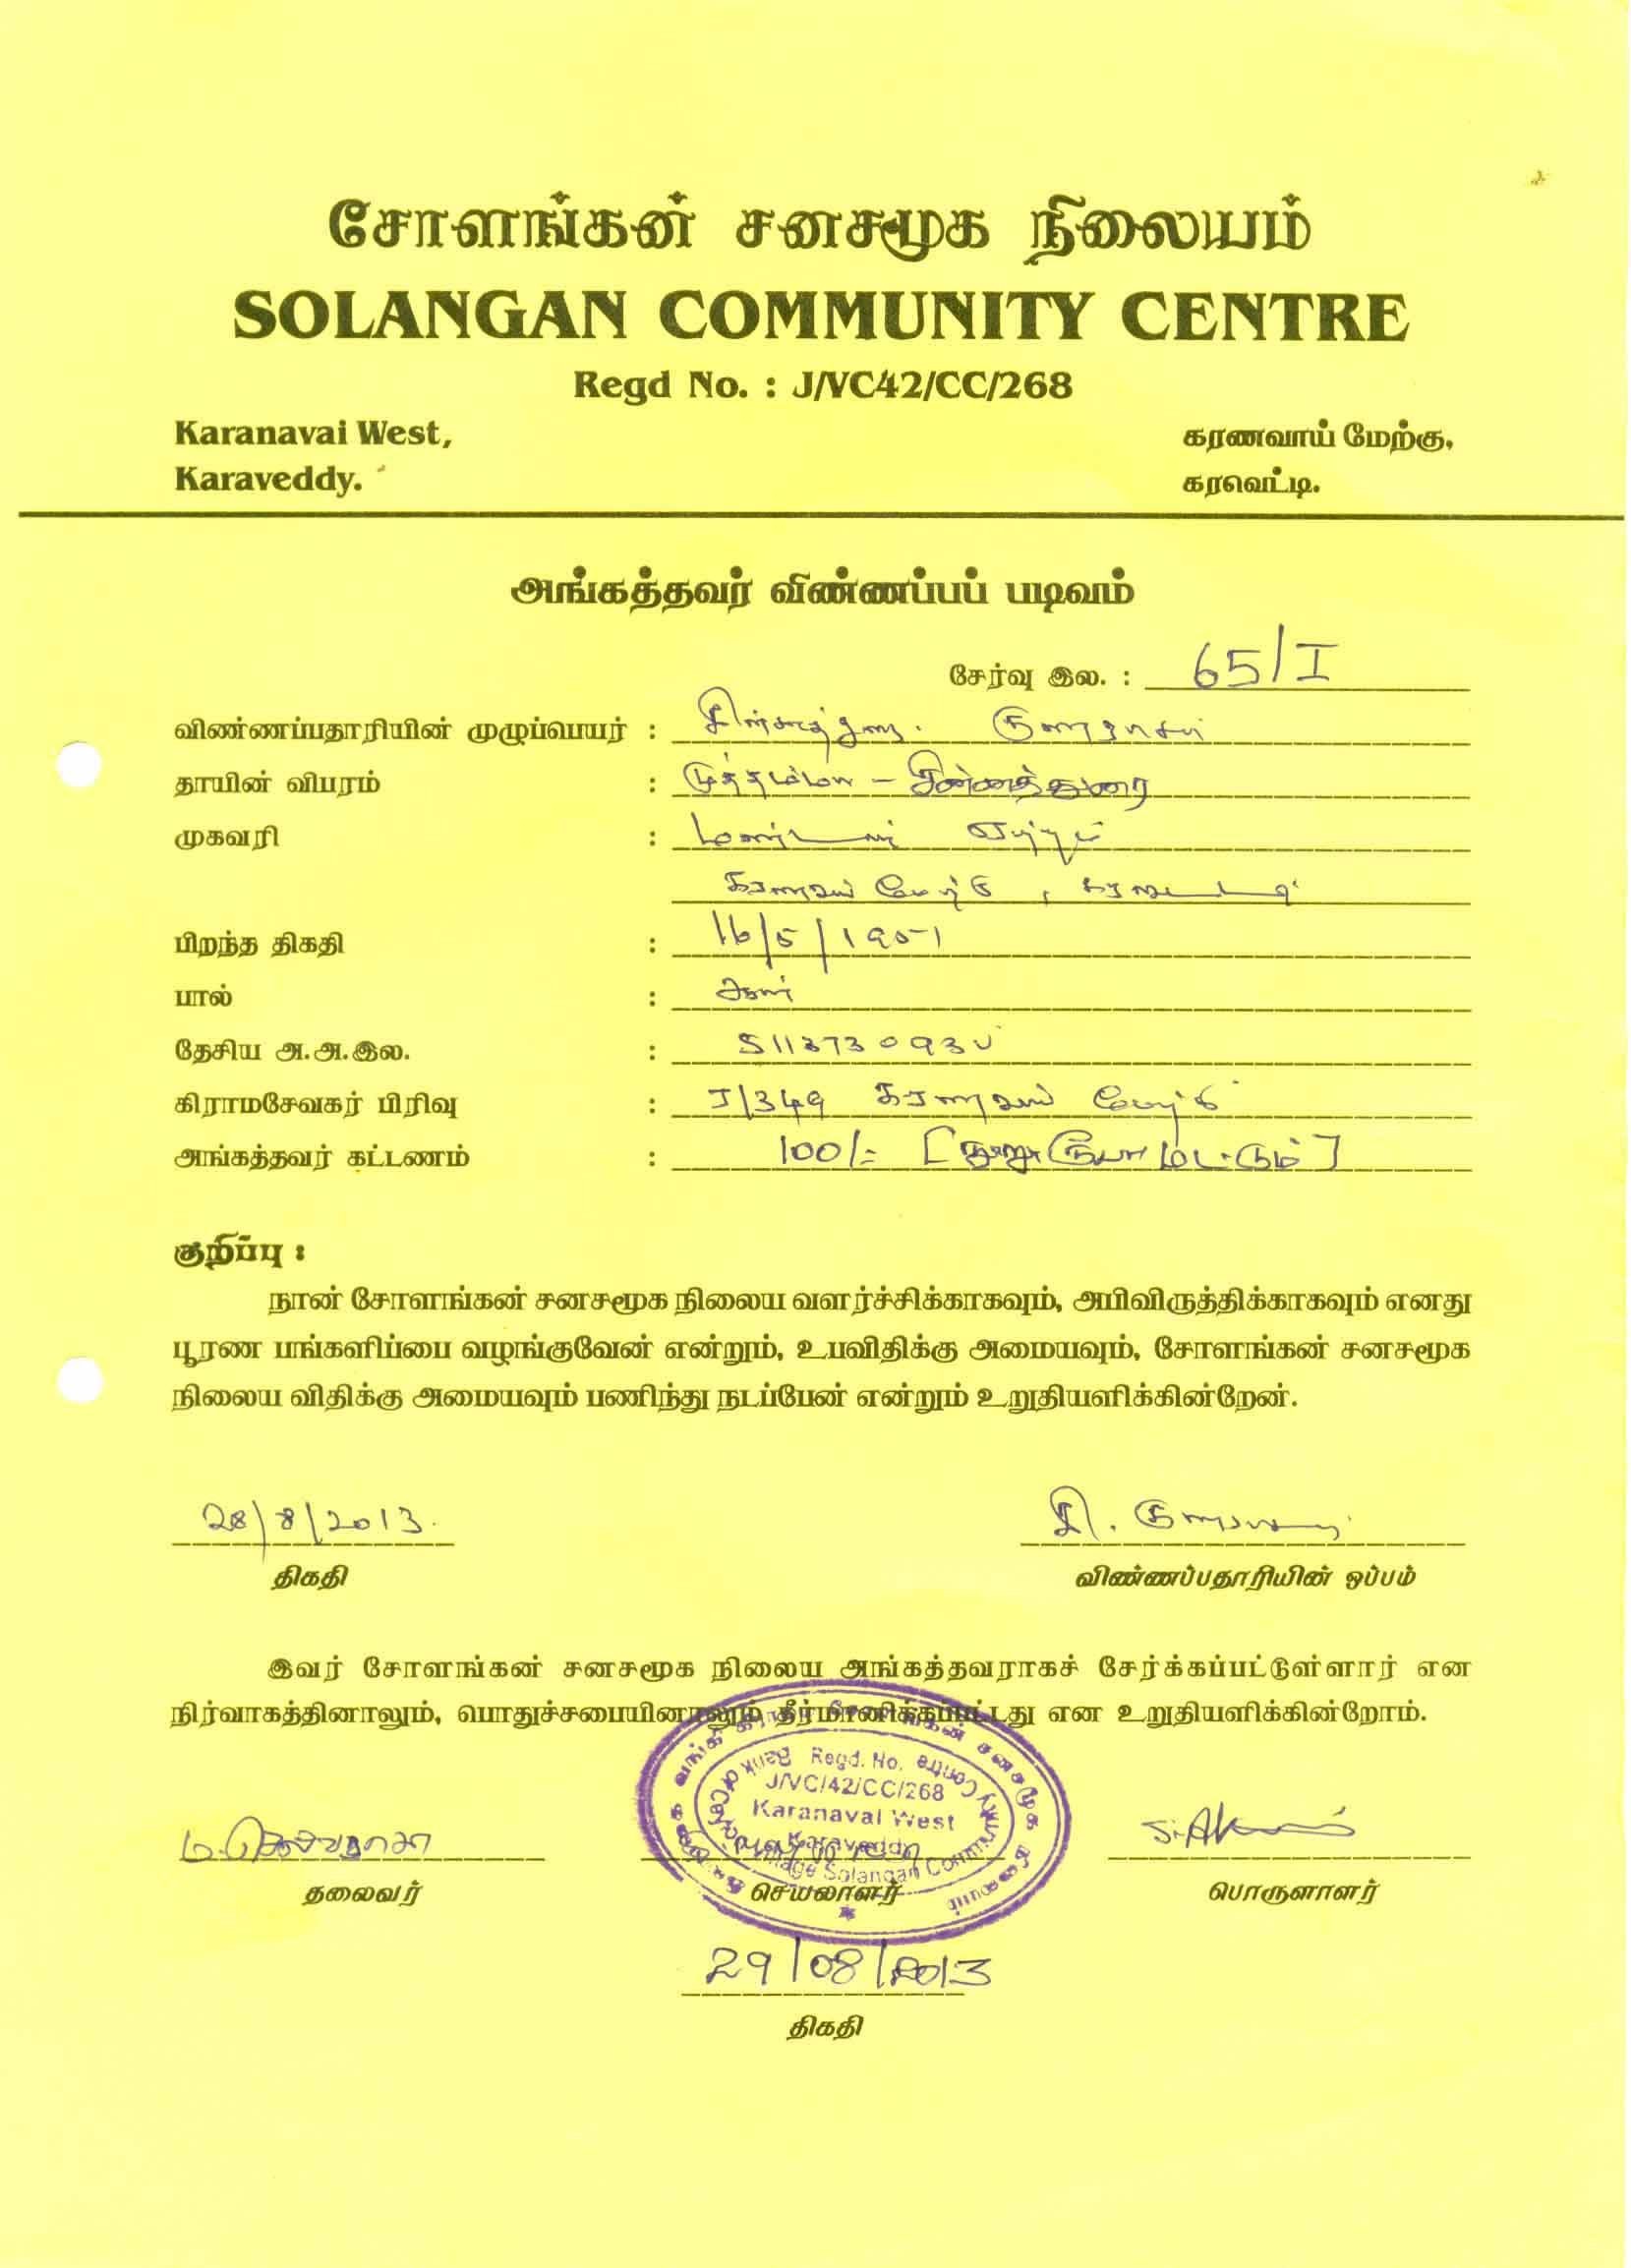 சோளங்கன் சனசமூக நிலையம்
SOLANGAN COMMUNITY CENTRE
Regd No. : J/VC42/CC/268
Karanavai West,
Karaveddy.
கரணவாய் மேற்கு,
கரவெட்டி.
அங்கத்தவர் விண்ணப்பப் படிவம்
சேர்வு இல. : 65/I
விண்ணப்பதாரியின் முழுப்பெயர் :
தாயின் விபரம் : முத்தம்மா - சின்னத்துரை
முகவரி :
கரணவாய் மேற்கு, கரவெட்டி
பிறந்த திகதி : 16/5/1951
பால் : ஆண்
தேசிய அ.அ.இல. : 511373093V
கிராமசேவகர் பிரிவு : J/349 கரணவாய் மேற்கு
அங்கத்தவர் கட்டணம் : 100/= [நூறு ரூபா மட்டும்]
குறிப்பு :
நான் சோளங்கன் சனசமூக நிலைய வளர்ச்சிக்காகவும், அபிவிருத்திக்காகவும் எனது
பூரண பங்களிப்பை வழங்குவேன் என்றும், உபவிதிக்கு அமையவும், சோளங்கன் சனசமூக
நிலைய விதிக்கு அமையவும் பணிந்து நடப்பேன் என்றும் உறுதியளிக்கின்றேன்.
28/8/2013.
திகதி
விண்ணப்பதாரியின் ஒப்பம்
இவர் சோளங்கன் சனசமூக நிலைய அங்கத்தவராகச் சேர்க்கப்பட்டுள்ளார் என
நிர்வாகத்தினாலும், பொதுச்சபையினாலும் தீர்மானிக்கப்பட்டது என உறுதியளிக்கின்றோம்.
Regd. No.
J/VC/42/CC/268
Karanavai West
Karaveddy
தலைவர்
செயலாளர்
பொருளாளர்
29/08/2013
திகதி